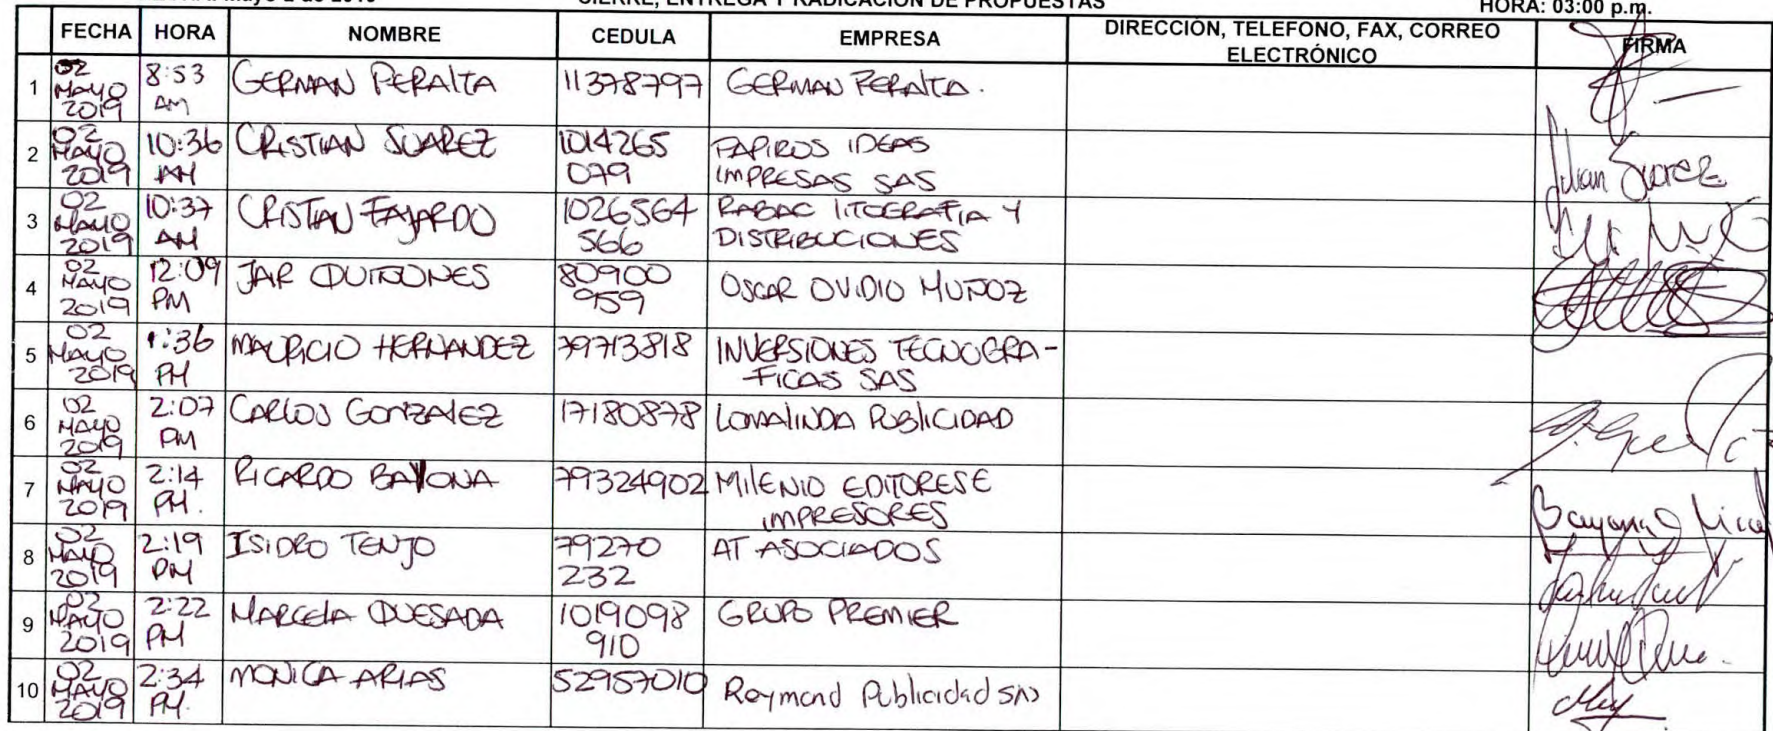 Mayo 2 de 2019 CIERRE, ENTREGA Y RADICACION DE PROPUESTAS HORA: 03:00 p.m.
FECHA HORA NOMBRE CEDULA EMPRESA DIRECCIÓN, TELEFONO, FAX, CORREO ELECTRÓNICO FIRMA
1 02 MAYO 2019 8:53 AM GERMAN PERALTA 11378797 GERMAN PERALTA.
2 02 MAYO 2019 10:36 AM CRISTIAN SUAREZ 1014265 079 PAPIROS IDEAS IMPRESAS SAS Suarez
3 02 MAYO 2019 10:37 AM CRISTIAN FAJARDO 1026564 566 RABAC LITOGRAFIA Y DISTRIBUCIONES
4 02 MAYO 2019 12:09 PM JAR QUIÑONES 80900 959 OSCAR OVIDIO MUÑOZ
5 02 MAYO 2019 1:36 PM MAURICIO HERNANDEZ 79713818 INVERSIONES TECNOGRA- FICAS SAS
6 02 MAYO 2019 2:07 PM CARLOS GONZALEZ 17180878 LOMALINDA PUBLICIDAD
7 02 MAYO 2019 2:14 PM. RICARDO BAYONA 79324902 MILENIO EDITORES E IMPRESORES Bayona
8 02 MAYO 2019 2:19 PM ISIDRO TENJO 79270 232 AT ASOCIADOS
9 02 MAYO 2019 2:22 PM MARCELA QUESADA 1019098 910 GRUPO PREMIER
10 02 MAYO 2019 2:34 PM. MONICA ARIAS 52957010 Raymond Publicidad SAS